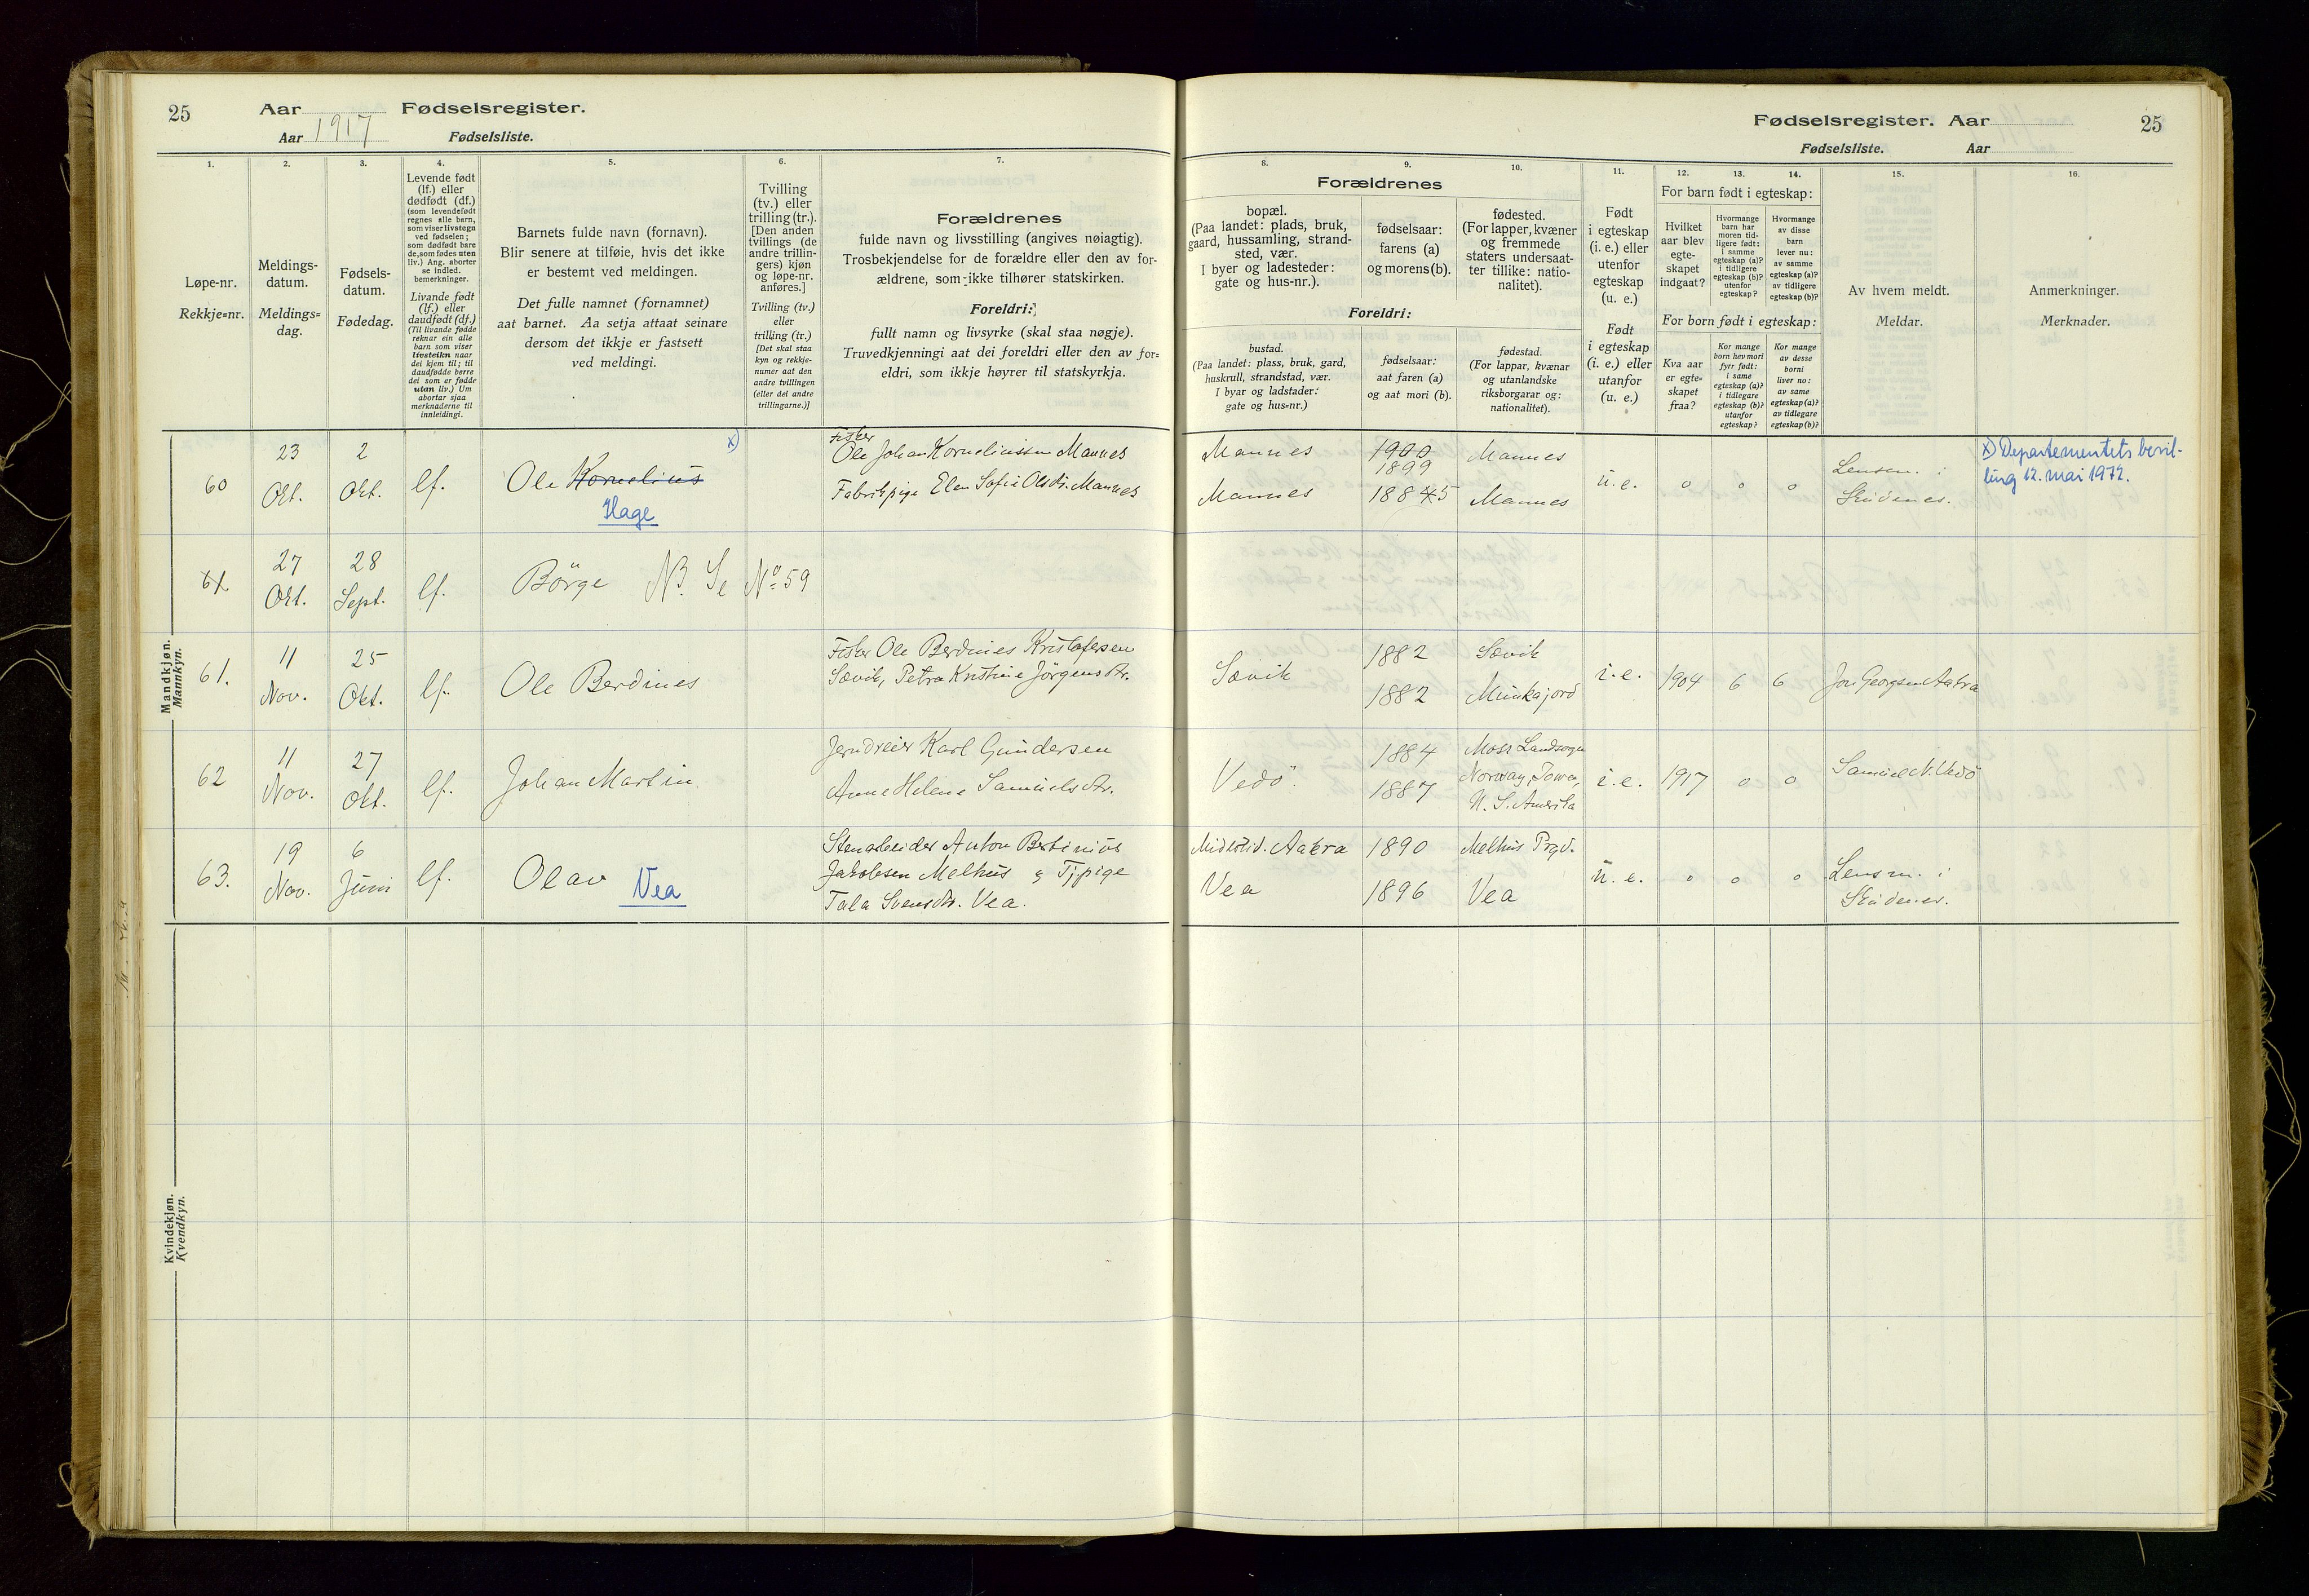 25
Aar
Fødselsregister.
Aar 1917
Fødselsliste.
Fødselsregister. Aar
25
Fødselsliste. Aar
1.
Løpe-nr.
Rekkje=nr.
2.
Meldings-
datum.
Meldings=
dag.
3.
Fødsels-
datum.
Fødedag.
4.
Levende født
(lf.) eller
dødfødt (df.)
(som levendefødt
regnes alle barn,
som viser livstegn
ved fødselen;
som dødfødt bare
de, som fødes uten
liv.) Ang. aborter
se indled.
bemerkninger.
Livande født
(lf.) eller
daudfødt (df.)
(Til livande fødde
reknar ein alle
barn som viser
livsteikn naar
dei kjem til; til
daudfødde berre
dei som er fødde
utan liv.) Um
abortar sjaa
merknaderne til
innleidingi.
5.
Barnets fulde navn (fornavn).
Blir senere at tilføie, hvis det ikke
er bestemt ved meldingen.
Det fulle namnet (fornamnet)
aat barnet. Aa setja attaat seinare
dersom det ikkje er fastsett
ved meldingi.
6.
Tvilling
(tv.) eller
trilling (tr.).
[Den anden
tvillings (de
andre trillin-
gers) kjøn
og løpe-nr.
anføres.]
Tvilling (tv.)
eller
trilling (tr.)
[Det skal staa
kyn og rekkje-
numer aat den
andre tvillingen
(eller dei andre
trillingarne.)]
7.
Forældrenes
fulde navn og livsstilling (angives nøiagtig).
Trosbekjendelse for de forældre eller den av for-
ældrene, som ikke tilhører statskirken.
Foreldri:
fullt namn og livsyrke (skal staa nøgje).
Truvedkjenningi aat dei foreldri eller den av for=
eldri, som ikkje høyrer til statskyrkja.
Forældrenes
8.
bopæl.
(Paa landet: plads, bruk,
gaard, hussamling, strand-
sted, vær.
I byer og ladesteder:
gate og hus-nr.).
9.
fødselsaar:
farens (a)
og morens (b).
10.
fødested.
(For lapper, kvæner
og fremmede
staters undersaat-
ter tillike: natio-
nalitet).
Foreldri:
bustad.
(Paa landet: plass, bruk, gard,
huskrull, strandstad, vær.
I byar og ladstader:
gate og hus=nr.)
fødselsaar:
aat faren (a)
og aat mori (b).
fødestad.
(For lappar, kvænar
og utanlandske
riksborgarar og:
nationalitet).
11.
Født
i egteskap
(i. e.) eller
utenfor
egteskap
(u. e.)
Født
i egteskap
(i. e.) eller
utanfor
(u. e.)
12. 13. 14.
For barn født i egteskap:
Hvilket
aar blev
egte-
skapet
indgaat?
Hvormange
barn har
moren tid-
ligere født:
i samme
egteskap (a)?
i tidligere
egteskap (b)?
utenfor
egteskap?
Hvormange
av disse
barn
lever nu:
av samme
egteskap (a)?
av tidligere
egteskap (b)?
For born født i egteskap:
Kva aar
er egte=
skapet
fraa?
Kor mange
born hev mori
fyrr født:
i same
egteskap (a)?
i tidlegare
egteskap (b)?
utanfor
egteskap?
Kor mange
av desse
borni
liver no:
av same
egteskap (a)?
av tidlegare
egteskap (b)?
15.
Av hvem meldt.
Meldar.
16.
Anmerkninger.
Merknader.
Mandkjøn.
Mannkyn.
60
23
Okt.
2
Okt.
lf.
Ole Kornelius x)
Hage
Fisker
Ole Johan Korneliussen Mannes
Fabrikpige Elen Sofie Olsdtr. Mannes
Mannes
Mannes
1900
1899
18845
Mannes
Mannes
u.e.
0 0 0
Lensm. i
Skudenes.
x) Departementets bevil-
ling 12. mai 1972.
61.
27
Okt.
28
Sept.
lf.
Börge NB. Se No 59
61.
11
Nov.
25
Okt.
lf.
Ole Berdines
Fisker Ole Berdines Kristofersen
Sævik, Petra Kristine Jörgensdtr.
Sævik
1882
1882
Sævik
Munkajord
i.e.
1904 6 6
Jon Georgsen Aakra
62
11
Nov.
27
Okt.
lf.
Johan Martin
Jerndreier Karl Gundersen
Anne Helene Samuelsdtr.
Vedö.
1884
1887
Moss Landsogn
Norway, Jowa,
N. S. Amerika
i.e.
1917 0 0
Samuel N. Vedö
63.
19
Nov.
6
Juni
lf.
Olav Vea
Stenarbeider Anton Bertinius
Jakobsen Melhus & Tjpige
Tala Svensdtr. Vea.
Midlertid. Aakra
Vea
1890
1896
Melhus Prgd.
Vea
u.e.
0 0 0
Lensm. i
Skudenes.
Kvindekjøn.
Kvendkyn.